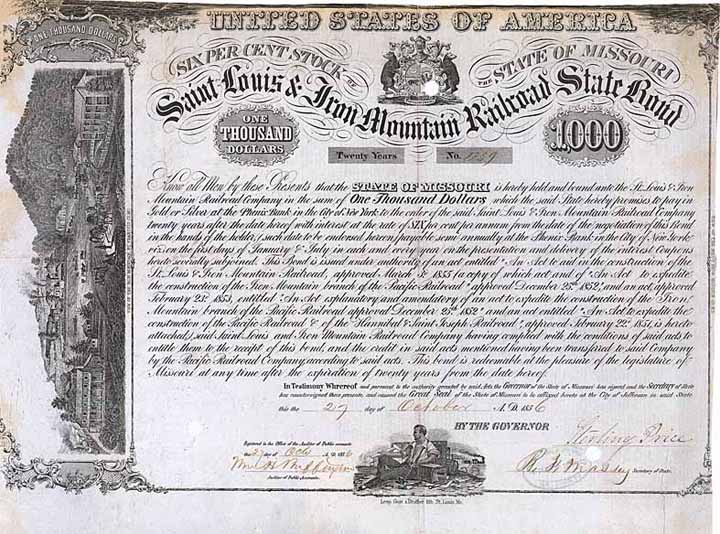 UNITED STATES OF AMERICA
ONE THOUSAND DOLLARS
SIX PER CENT STOCK OF THE STATE OF MISSOURI
Saint Louis & Iron Mountain Railroad State Bond
ONE
THOUSAND
DOLLARS
1000
Twenty Years No.
Know all Men by these Presents that the STATE OF MISSOURI is hereby held and bound unto the St. Louis & Iron
Mountain Railroad Company in the sum of One Thousand Dollars which the said State hereby promises to pay in
Gold or Silver at the Phenix Bank in the City of New York to the order of the said Saint Louis & Iron Mountain Railroad Company
twenty years after the date hereof with interest at the rate of SIX per cent per annum from the date of the negotiation of this Bond
in the hands of the holder, such date to be endorsed hereon payable semi annually at the Phenix Bank in the City of New York
viz. on the first days of January & July in each and every year on the presentation and delivery of the interest Coupons
hereto severally subjoined. This Bond is issued under authority of an act entitled "An Act to aid in the construction of the
St. Louis & Iron Mountain Railroad, approved March 3d 1855 (a copy of which act and of "An Act to expedite
the construction of the Iron Mountain branch of the Pacific Railroad" approved December 25th 1852, and an act, approved
February 23d 1853, entitled "An Act explanatory and amendatory of an act to expedite the construction of the Iron
Mountain branch of the Pacific Railroad approved December 25th 1852" and an act entitled "An Act to expedite the
construction of the Pacific Railroad & of the Hannibal & Saint Joseph Railroad", approved February 22d 1851, is hereto
attached) said Saint Louis and Iron Mountain Railroad Company having complied with the conditions of said acts to
entitle them to the receipt of this bond, and the credit in said acts mentioned having been transferred to said Company
by the Pacific Railroad Company according to said acts. This bond is redeemable at the pleasure of the legislature of
Missouri at any time after the expiration of twenty years from the date hereof.
In Testimony Whereof and pursuant to the authority granted by said Acts, the Governor of the State of Missouri has signed and the Secretary of State
has countersigned these presents, and caused the Great Seal of the State of Missouri to be affixed hereto at the City of Jefferson in said State
this the 27 day of October A.D. 1856
BY THE GOVERNOR
Sterling Price
Registered in the Office of the Auditor of Public accounts
the 27 day of Oct A.D. 1856
Auditor of Public Accounts.
Secretary of State.
Leop. Gast & Brother lith. St. Louis Mo.